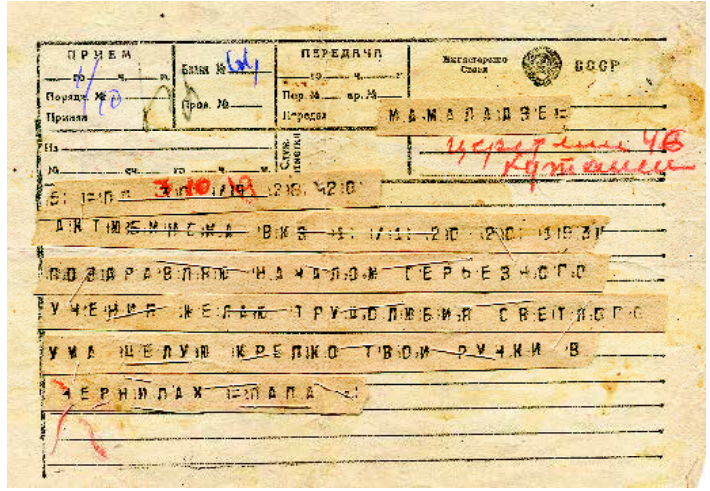 ПРИЕМ
го ч. м.
Порядк. №
Принял
Бланк №
Пров. №
ПЕРЕДАЧА
го ч. м.
Пер. № пр. №
Передал
Министерство
Связи
СССР
МАМАЛАДЗЕ=
церетели 46
кутаиси
Из
№ сч. го ч. м.
Служ. отметки
АКТЮБИНСКА
ПОЗДРАВЛЯЮ НАЧАЛОМ СЕРЬЕЗНОГО
УЧЕНИЯ ЖЕЛАЮ ТРУДОЛЮБИЯ СВЕТЛОГО
УМА ЦЕЛУЮ КРЕПКО ТВОИ РУЧКИ В
ЧЕРНИЛАХ =ПАПА